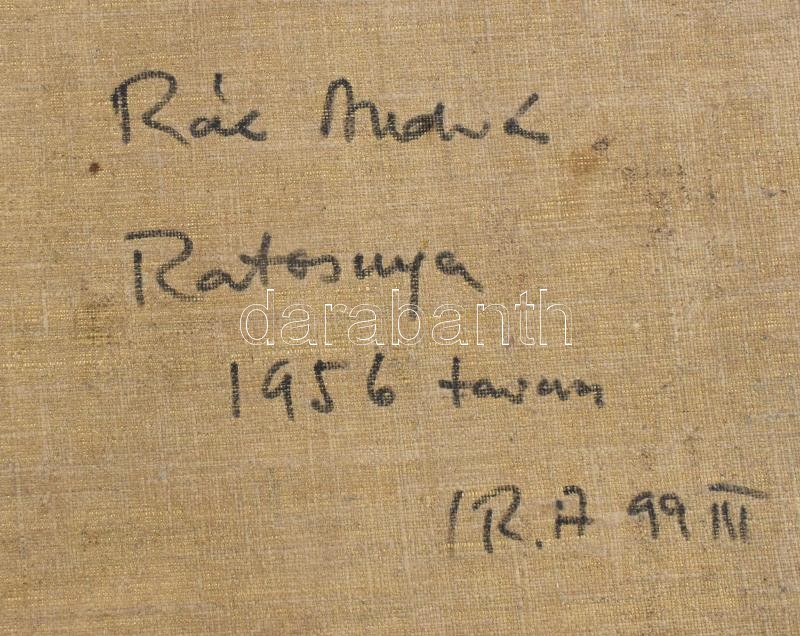 Rác András
Ratosnya
darabanth
1956 tavasz
/R. A 99 III